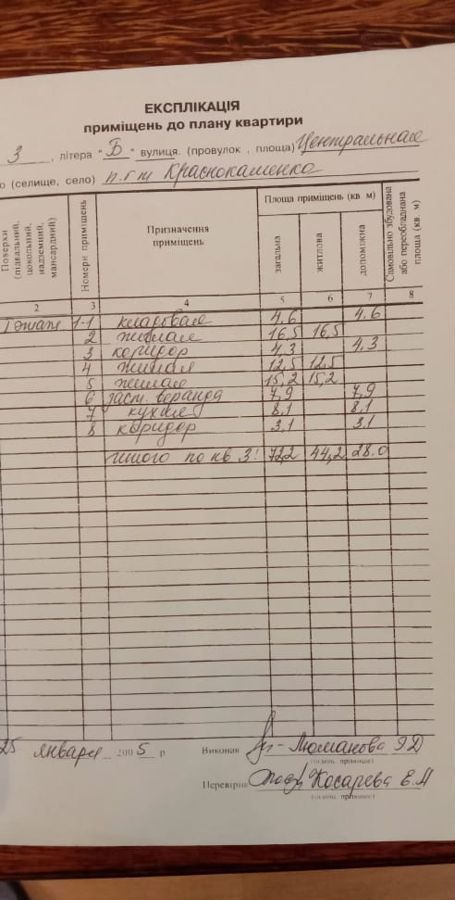 ЕКСПЛІКАЦІЯ
приміщень до плану квартири
3, літера "Б" вулиця. (провулок, площа) Центральная
о (селище, село) п.г.т Краснокаменка
Поверхи (підвальний, цокольний, надземний, мансардний)
Номери приміщень
Призначення приміщень
Площа приміщень (кв. м)
загальна
житлова
допоміжна
Самовільно збудована або переобладнана площа (кв. м)
2 3 4 5 6 7 8
1 этаж 1-1 кладовая 4,6 4.6
2 жилая 16,5 16,5
3 коридор 4,3 4,3
4 жилая 12,5 12,5
5 жилая 15,2 15,2
6 заст. веранда 7,9 7,9
7 кухня 8,1 8,1
8 коридор 3,1 3.1
итого по кв 3: 72,2 44,2 28.0
25 января 2005 р Виконав Люманова Я Д
(підпис, прізвище)
Перевірив Косарева Е.А
(підпис, прізвище)